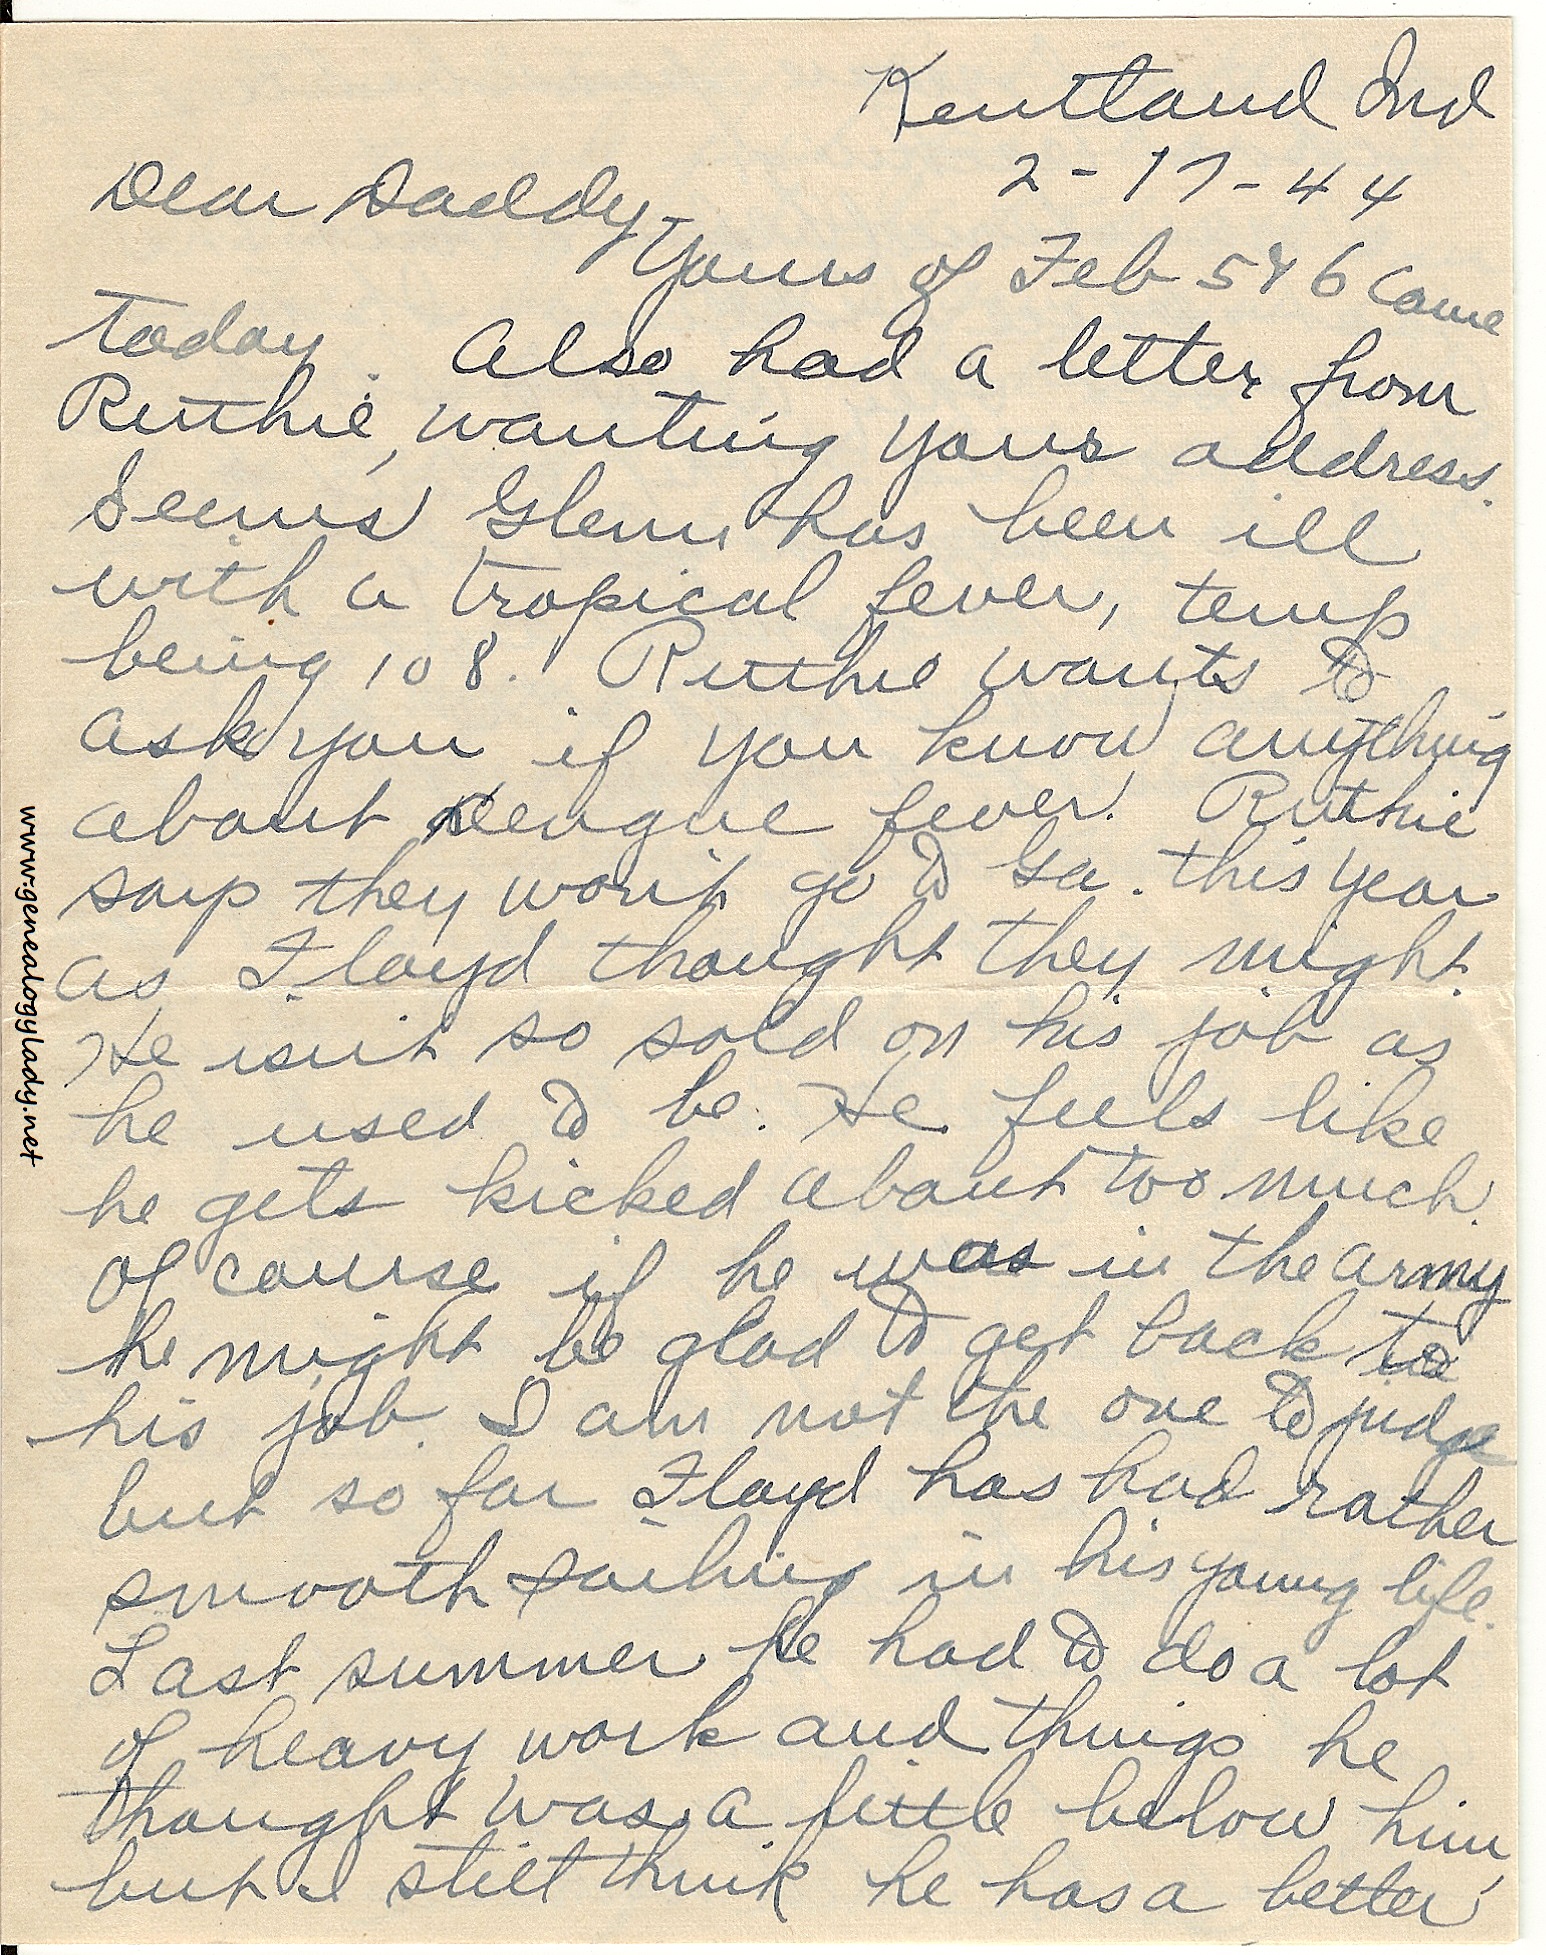 Kentland Ind
2-17-44
Dear Daddy-
Yours of Feb 5 & 6 came
today. Also had a letter from
Ruthie, wanting your address.
Seems Glenn has been ill
with a tropical fever, temp
being 108. Ruthie wants to
ask you if you know anything
about Dengue fever. Ruthie
says they won't go to Ga. this year
as Floyd thought they might.
He isn't so sold on his job as
he used to be. He feels like
he gets kicked about too much.
Of course if he was in the army
he might be glad to get back to
his job. I am not the one to judge
but so far Floyd has had rather
smooth sailing in his young life.
Last summer he had to do a lot
of heavy work and things he
thought was a little below him
but I still think he has a better
www.genealogylady.net